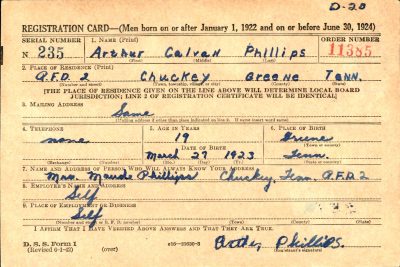 D-20
REGISTRATION CARD—(Men born on or after January 1, 1922 and on or before June 30, 1924)
SERIAL NUMBER 1. NAME (Print) ORDER NUMBER
N 235 Arthur Calvan Phillips 11385
(First) (Middle) (Last)
2. PLACE OF RESIDENCE (Print)
R.F.D. 2 Chuckey Greene Tenn.
(Town, township, village, or city) (County) (State)
[THE PLACE OF RESIDENCE GIVEN ON THE LINE ABOVE WILL DETERMINE LOCAL BOARD
JURISDICTION; LINE 2 OF REGISTRATION CERTIFICATE WILL BE IDENTICAL]
3. MAILING ADDRESS
Same
[Mailing address if other than place indicated on line 2. If same insert word same]
4. TELEPHONE 5. AGE IN YEARS 6. PLACE OF BIRTH
none 19 Greene
DATE OF BIRTH (Town or county)
March 27 1923 Tenn.
(Exchange) (Number) (Mo.) (Day) (Yr.) (State or country)
7. NAME AND ADDRESS OF PERSON WHO WILL ALWAYS KNOW YOUR ADDRESS
Mrs. Maude Phillips Chuckey, Tenn. R.F.D. 2
8. EMPLOYER'S NAME AND ADDRESS
Self
9. PLACE OF EMPLOYMENT OR BUSINESS
Self
(Number and street or R. F. D. number) (Town) (County) (State)
I AFFIRM THAT I HAVE VERIFIED ABOVE ANSWERS AND THAT THEY ARE TRUE.
D. S. S. Form 1
(Revised 6-1-42) (over) Phillips.
(Registrant's signature)